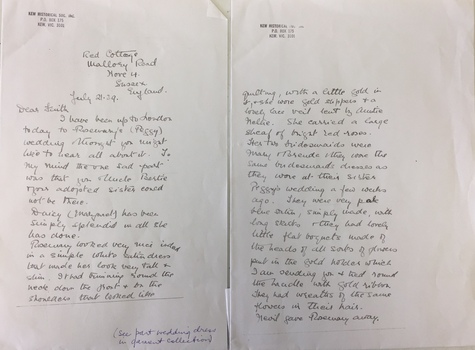 KEW HISTORICAL SOC. INC.
P.O. BOX 175
KEW. VIC. 3101
Red Cottage
Mallory Road
Hove 4
Sussex
England.
July 21. 29.
Dear Edith
I have been up to London
today to Rosemary's (Peggy)
wedding & thought you might
like to hear all about it. To
my mind the one sad part
was that you & Uncle Bertie
& your adopted sister could
not be there.
Daisy (Margaret) has been
simply splendid in all she
has done.
Rosemary looked very nice indeed
in a simple white satin dress
that made her look very tall &
slim. It had trimming round the
neck down the front & on the
shoulders that looked like
(see part wedding dress
in garment collection)
KEW HISTORICAL SOC. INC.
P.O. BOX 175
KEW. VIC. 3101
quilting, with a little gold in
it, & she wore gold slippers & a
lovely lace veil lent by Auntie
Nellie. She carried a large
sheaf of bright red roses.
Her two bridesmaids were
Mary & they wore the
same bridesmaids dresses as
they wore at their sister
Peggy's wedding a few weeks
ago. They were very pale
blue satin, simply made, with
long skirts & they had lovely
little flat bouquets made of
the heads of all sorts of flowers
put in the gold holder which
I am sending you & tied round
the handle with gold ribbon.
They had wreaths of the same
flowers in their hair.
Nevil gave Rosemary away.